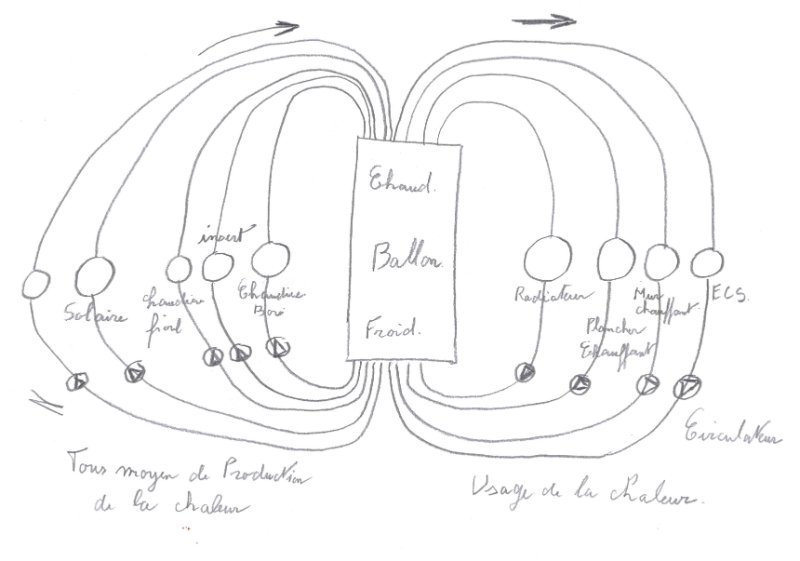 Chaud.
Ballon
Froid.
insert
Solaire
Chaudière
fioul
Chaudière
Bois
Radiateur
Plancher
Chauffant
Mur
chauffant
ECS.
Circulateur
Tous moyen de Production
de la chaleur
Usage de la chaleur.